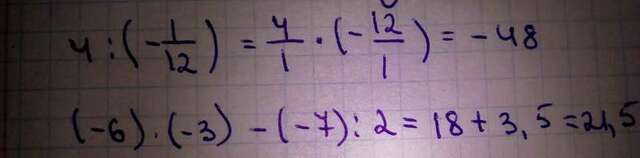 4 : (-1/12) = 4/1 · (-12/1) = -48
(-6) · (-3) - (-7) : 2 = 18 + 3,5 = 21,5